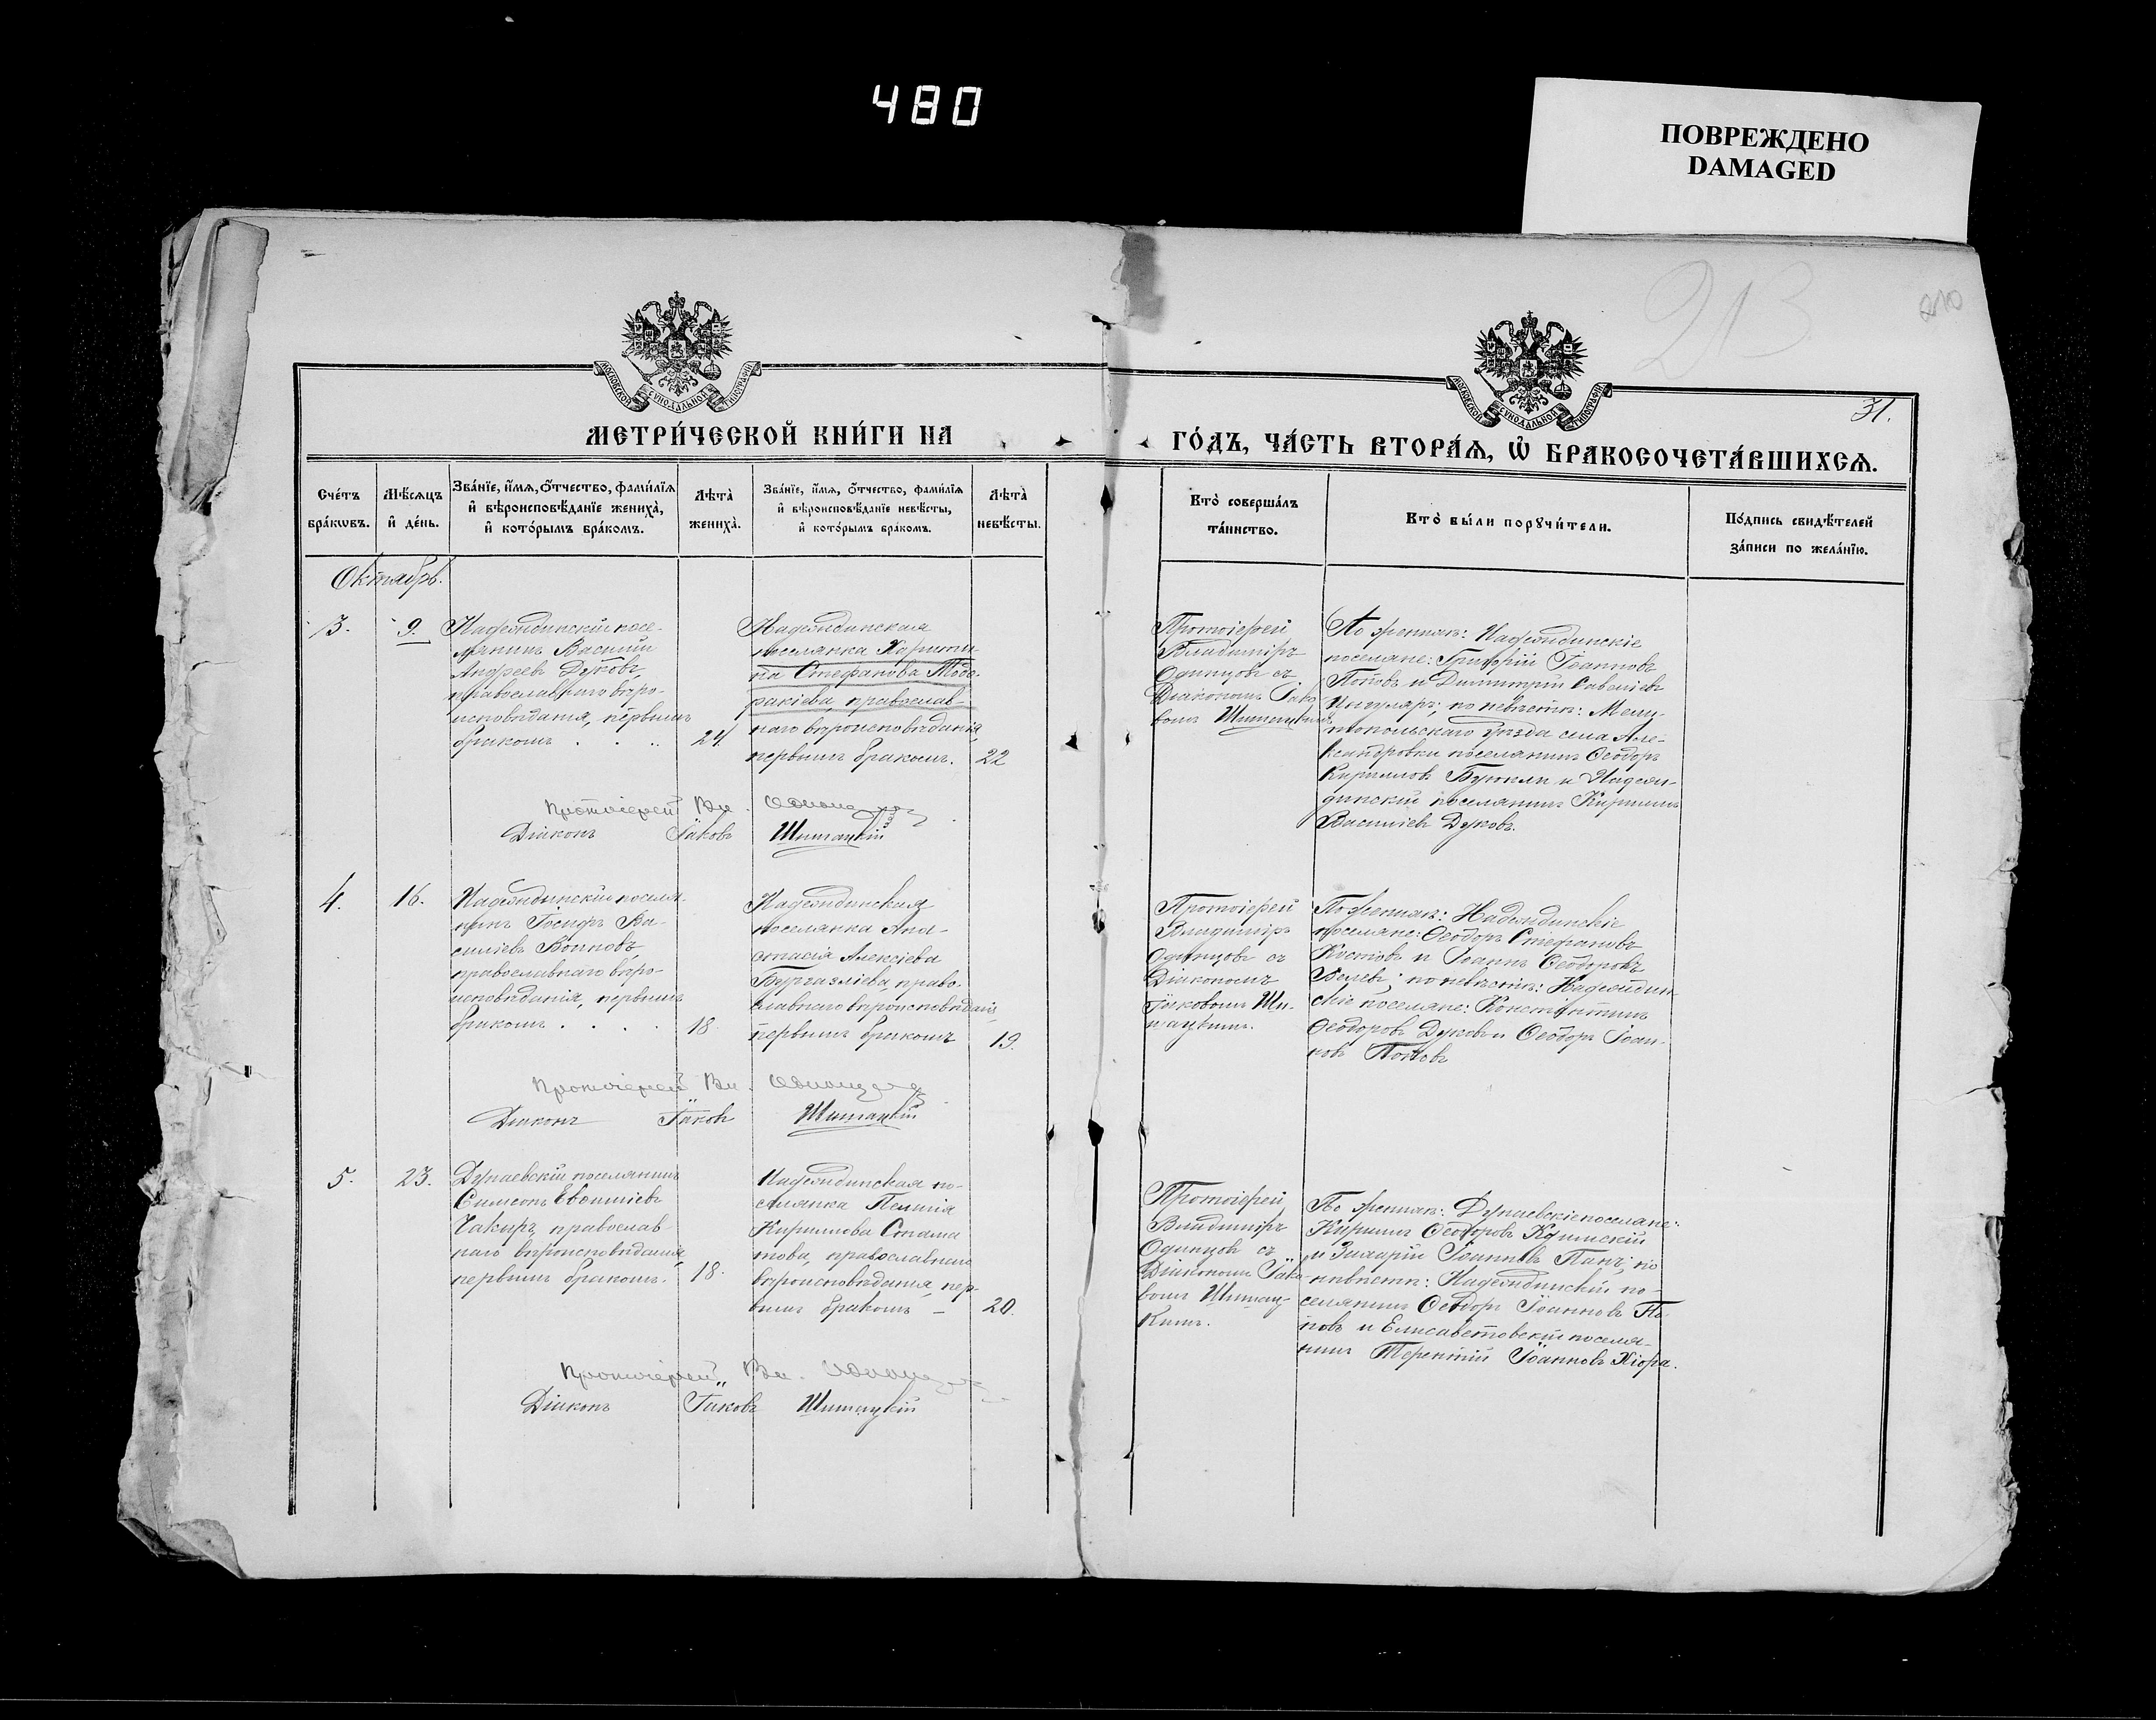 480
ПОВРЕЖДЕНО
DAMAGED
213
210
31.
МОСКОВСКОЙ СѴНОДАЛЬНОЙ ТИПОГРАФІИ
МОСКОВСКОЙ СѴНОДАЛЬНОЙ ТИПОГРАФІИ
МЕТРИ́ЧЕСКОЙ КНИ́ГИ НА
ГО́ДЪ, ЧА́СТЬ ВТОРА́Я, Ѡ҆ БРАКОСОЧЕТА́ВШИХСЯ.
Сче́тъ
бра́кѡвъ.
Мѣ́сяцъ
и҆ де́нь.
Зва́нїе, и҆́мя, ѻ҆́тчество, фами́лїя
и҆ вѣроисповѣ́данїе жениха̀,
и҆ кото́рымъ бра́комъ.
Лѣта̀
жениха̀.
Зва́нїе, и҆́мя, ѻ҆́тчество, фами́лїя
и҆ вѣроисповѣ́данїе невѣ́сты,
и҆ кото́рымъ бра́комъ.
Лѣта̀
невѣ́сты.
Кто̀ соверша́лъ
та́инство.
Кто̀ бы́ли порꙋчи́тели.
По́дпись свидѣ́телей
за́писи по жела́нїю.
Октябрь.
3.
9.
Надеждинскій посе-
лянинъ Василій
Андреевъ Дуковъ,
православнаго вѣро-
исповѣданія, первымъ
бракомъ . . .
24
Надеждинская
поселянка Харити-
на Стефанова Тодо-
ракіева, православ-
наго вѣроисповѣданія,
первымъ бракомъ.
22
Протоіерей
Владиміръ
Одинцовъ съ
Діакономъ Іако-
вомъ Шитацкимъ
По женихѣ: Надеждинскіе
поселяне: Григорій Іоанновъ
Поповъ и Димитрій Савеліевъ
по невѣстѣ: Мели-
топольскаго уѣзда села Але-
ксандровки поселянинъ Ѳеодоръ
Кирилловъ и Надеж-
динскій поселянинъ Кириллъ
Василіевъ Дуковъ.
Протоіерей Вл. Одинцовъ
Діаконъ Іаковъ Шитацкій
4.
16.
Надеждинскій поселя-
нинъ Іосифъ Ва-
силіевъ Воиновъ,
православнаго вѣро-
исповѣданія, первымъ
бракомъ . . . .
18.
Надеждинская
поселянка Ана-
стасія Алексіева
Бургазліева, право-
славнаго вѣроисповѣданія,
первымъ бракомъ
19.
Протоіерей
Владиміръ
Одинцовъ съ
Діакономъ
Іаковомъ Ши-
тацкимъ.
По женихѣ: Надеждинскіе
поселяне: Ѳеодоръ Стефановъ
Костовъ и Іоаннъ Ѳеодоровъ
Велевъ; по невѣстѣ: Надеждин-
скіе поселяне: Константинъ
Ѳеодоровъ Дуковъ и Ѳеодоръ Іоан-
новъ Поповъ
Протоіерей Вл. Одинцовъ
Діаконъ Іаковъ Шитацкій
5.
23.
Дунаевскій поселянинъ
Симеонъ Евѳиміевъ
Чакиръ, православ-
наго вѣроисповѣданія,
первымъ бракомъ.
18.
Надеждинская по-
селянка
Кириллова Стама-
това, православнаго
вѣроисповѣданія, пер-
вымъ бракомъ –
20.
Протоіерей
Владиміръ
Одинцовъ съ
Діакономъ Іако-
вомъ Шитац-
кимъ.
По женихѣ: Дунаевскіе поселяне:
Кириллъ Ѳеодоровъ
и Захарій Іоанновъ по
невѣстѣ: Надеждинскій по-
селянинъ Ѳеодоръ Іоанновъ По-
повъ и Елисаветовскій поселя-
нинъ Терентій Іоанновъ Кіора.
Протоіерей Вл. Одинцовъ
Діаконъ Іаковъ Шитацкій